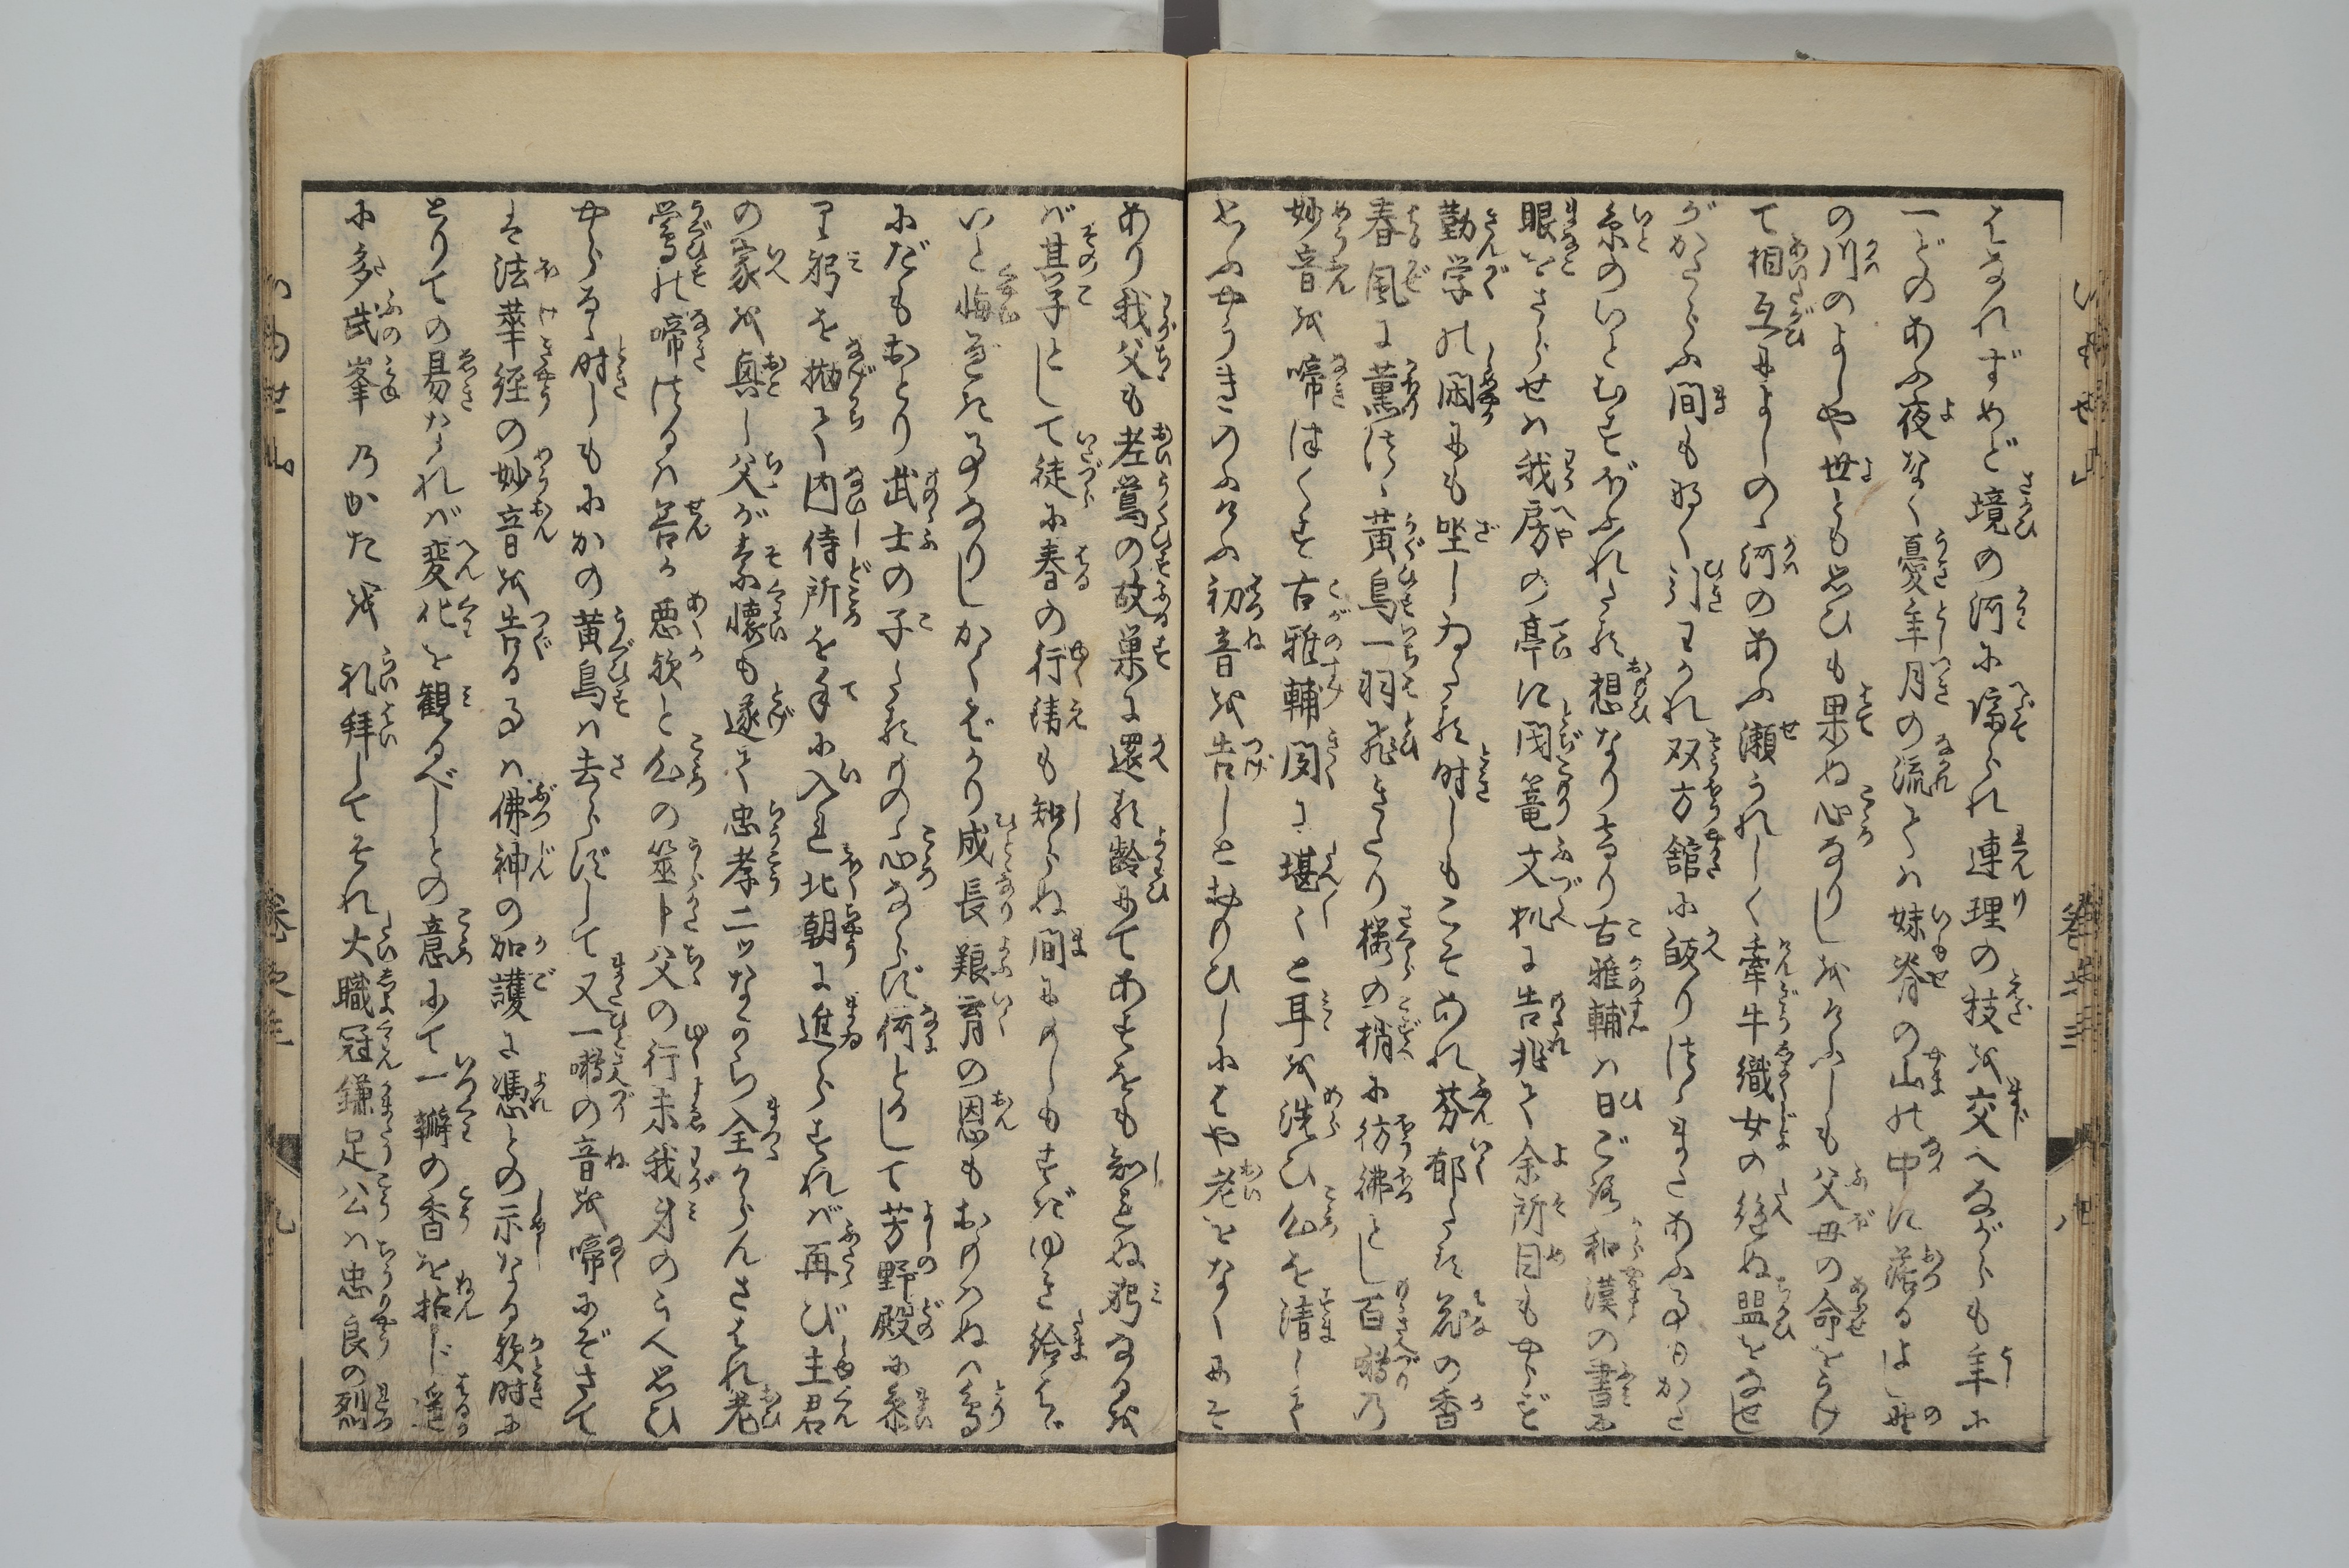 はなれずめど境の河に隔られ連理の枝を交へながらも年に
一どのあふ夜なく憂年月の流ては妹脊の山の中に落るよし野
の川のよしや世とも思ひも果ぬ心なりしをけふしも父母の命をうけ
て相互によしのゝ河のあふ瀬うれしく牽牛織女の絶ぬ盟をなせ
がかたらふ間もなく引わかれ双方舘に皈りつゝまたあふ事はかた
糸のいとむすぼふれたる想なり古雅輔は日ごろ和漢の書に
眼をさらせば我房の亭に閉篭文机に告兆て余所目もやらず
勤学の閑にも坐しゐたる時しもこそあれ芬郁たる花の香
春風に薫つゝ黄鳥一羽飛きたり桜の梢に彷彿とし百囀乃
妙音を啼つくす古雅輔聞に堪〻と耳を洗ひ心を清して
思ふやうきのふけふ初音を告しと思ひしにはや老をなくにそ
あり我父も老鴬の故巣に還る齢にてあすをも知らぬ身なるを
が其子として徒に春の行衛も知らぬ間にのしもすぼゆを給はで
いと悔ぎる事なりしかくばかり成長艱育の恩もおもはぬは鳥
にだもおとり武士の子たるものゝ心ならず何とぞして芳野殿に参
り躬を拋て内侍所を手に入れ北朝に進らすれば再び主君
の家を興し父が素懐も遂て忠孝二ツながら全からんさはれ老
鴬の啼つるは善か悪歟と心の筮卜父の行末我身のうへ思ひ
やらるゝ時しもにかの黄鳥は去らずして又一囀の音を啼にぞさて
は法華経の妙音を告る事は佛神の加護に憑との示なる歟時に
とりての易なれば変化を観るべしとの意にて一瓣の香を拈じ遥
に多武峯乃かたを礼拝してそれ大職冠鎌足公は忠良の烈